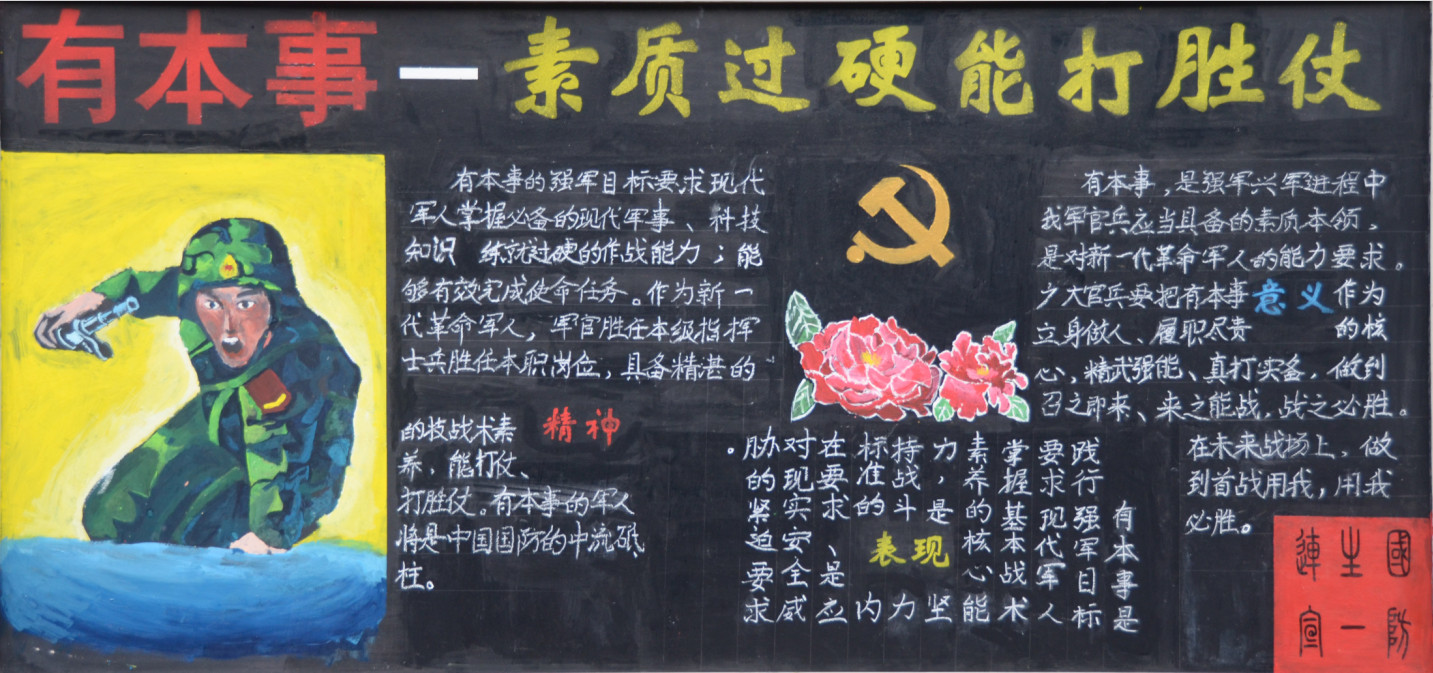 有本事—素质过硬能打胜仗
有本事的强军目标要求现代
军人掌握必备的现代军事、科技
知识 练就过硬的作战能力；能
够有效完成使命任务。作为新一
代革命军人，军官胜任本级指挥
士兵胜任本职岗位，具备精湛的
的技战术素 精神
养，能打仗、
打胜仗。有本事的军人
将是中国国防的中流砥
柱。
有本事是
践行强军目标
要求现代军人
掌握基本战术
素养的核心能
力，是坚
持战斗力
标准的内
在要求、是应
对现实安全威
胁的紧迫要求
。
表现
有本事，是强军兴军进程中
我军官兵应当具备的素质本领，
是对新一代革命军人的能力要求。
广大官兵要把有本事 意义 作为
立身做人、履职尽责 的核
心，精武强能、真打实备，做到
召之即来、来之能战、战之必胜。
在未来战场上，做
到首战用我，用我
必胜。
國防
生一
連宣